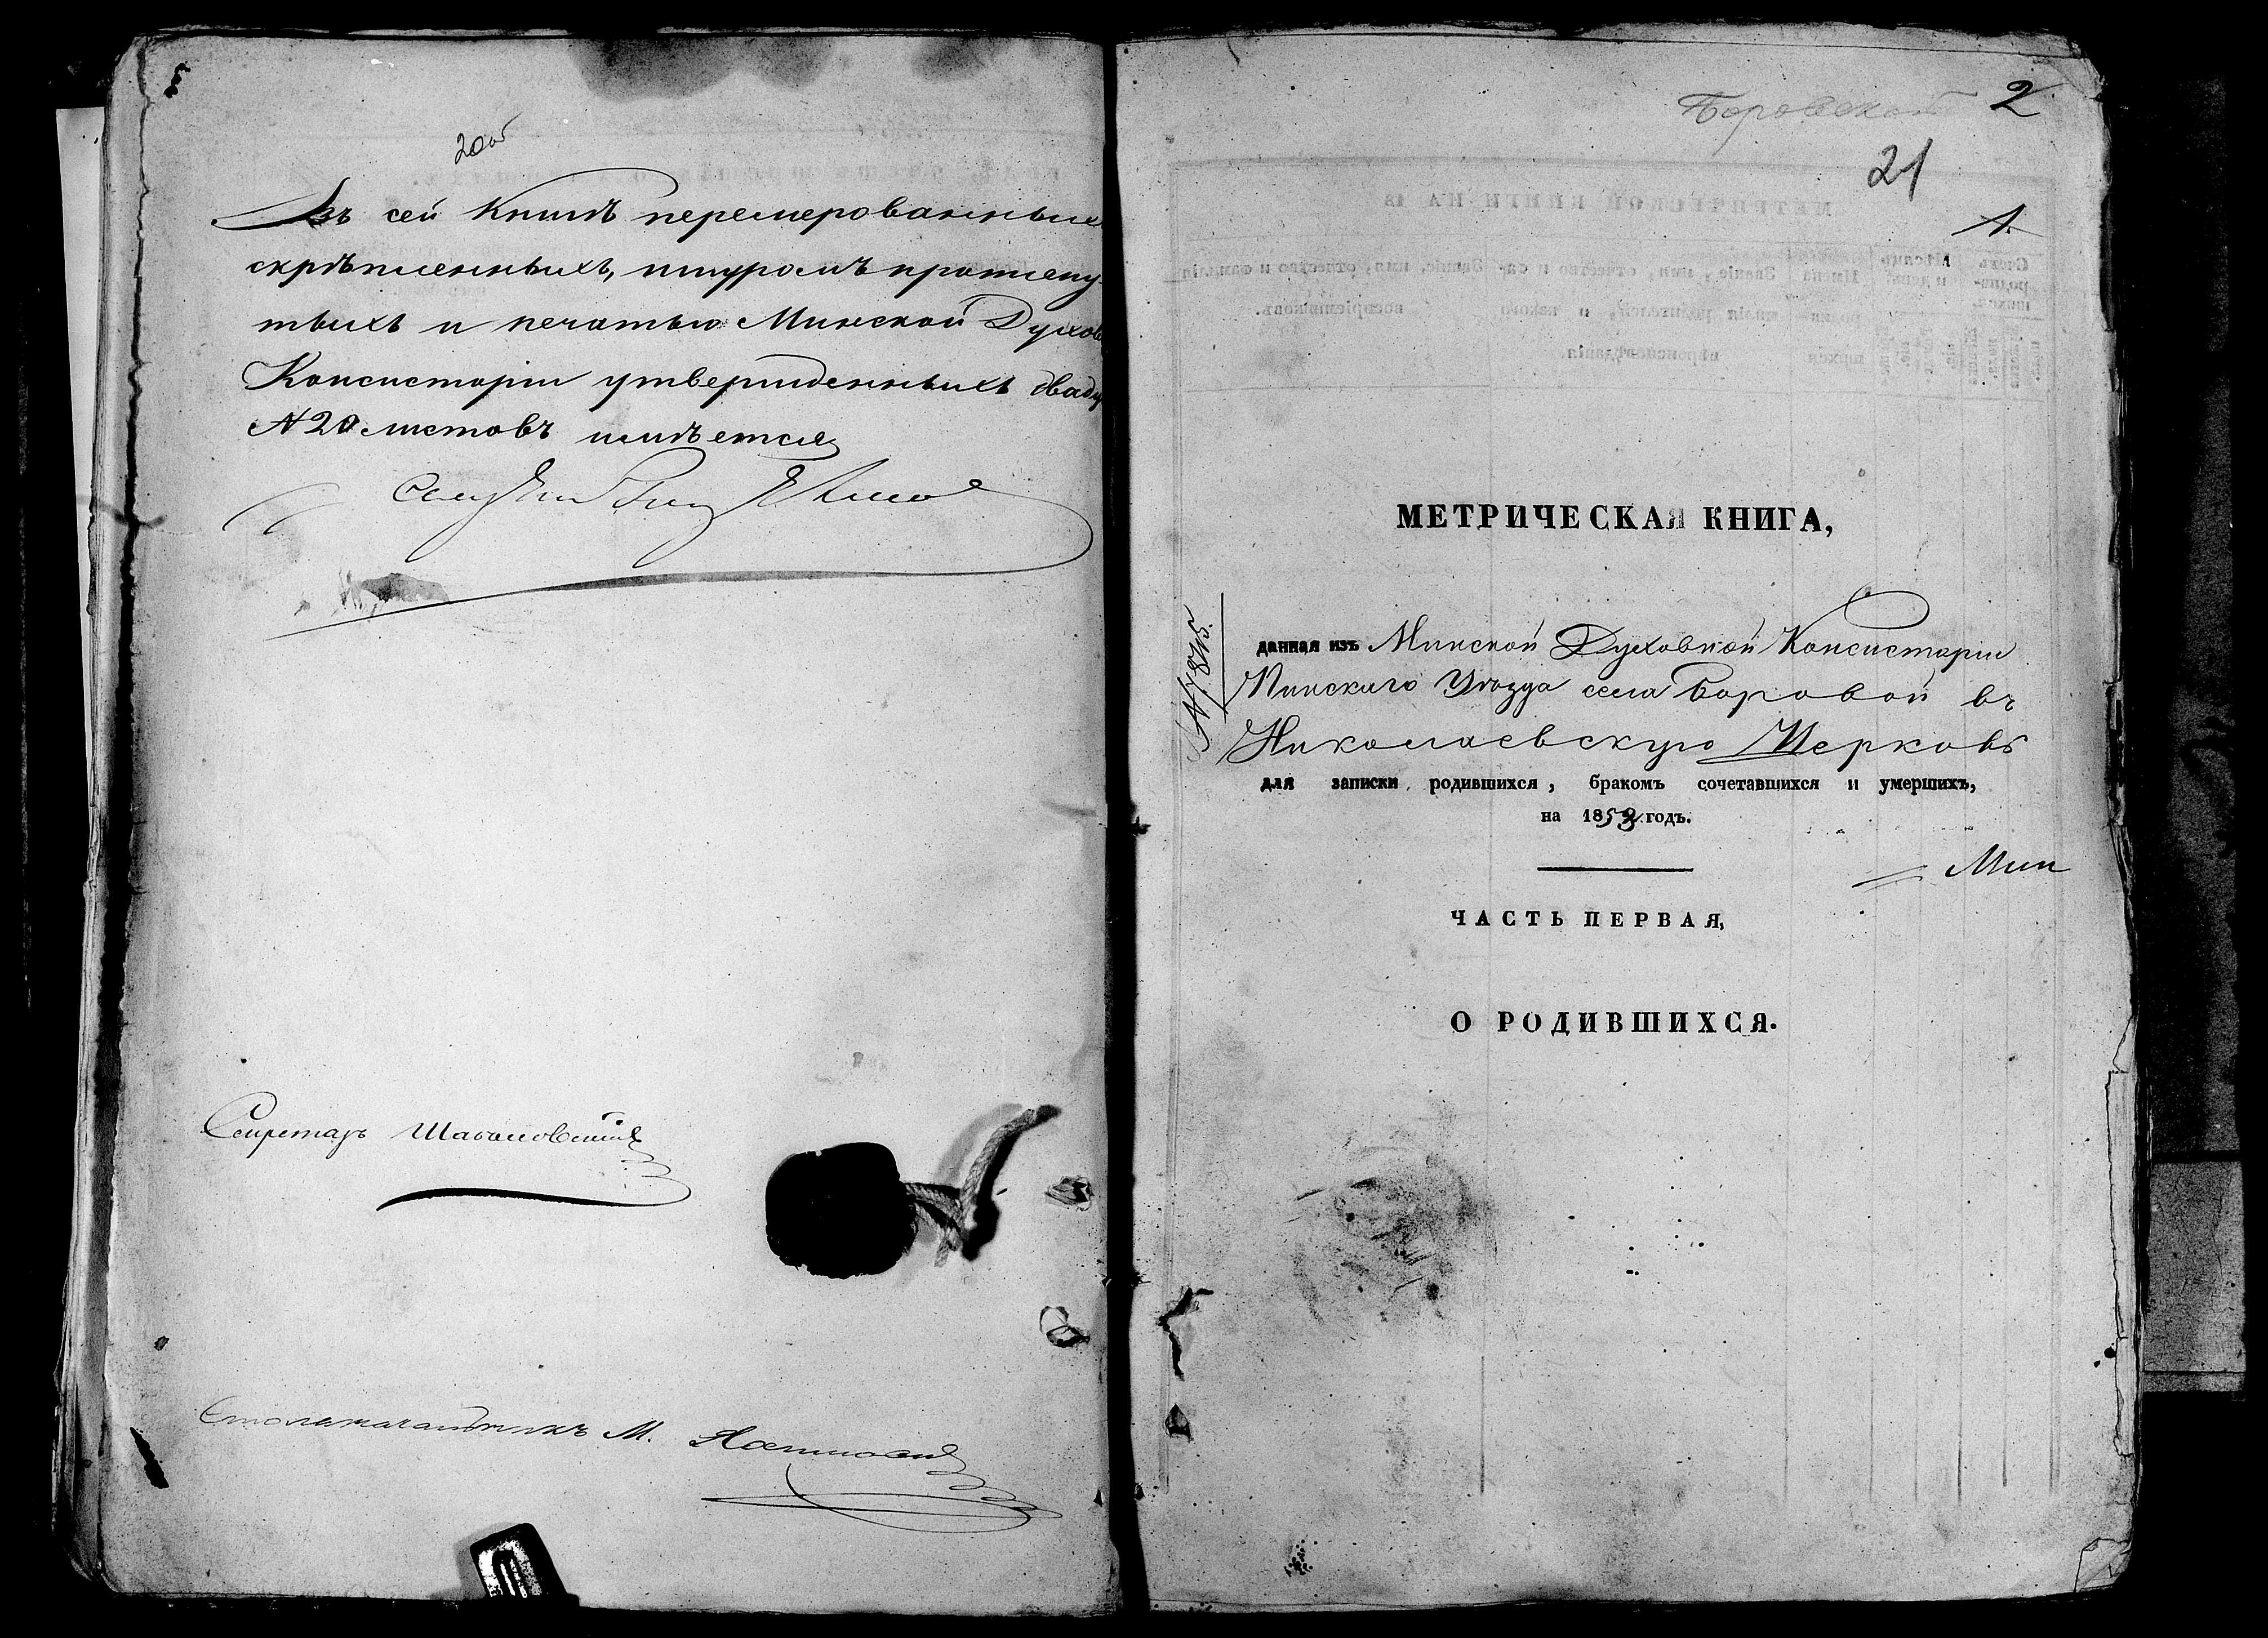 20об
Въ сей Книгѣ перемерованныхъ
скрѣпленныхъ, шнуромъ протяну-
тыхъ и печатью Минской Духов
Консисторіи утвержденныхъ двадц
№ 20 листовъ имѣется
Секретарь
Столоначальникъ М.
2
21
1.
МЕТРИЧЕСКАЯ КНИГА,
данная изъ Минской Духовной Консисторіи
Пинскаго Уѣзда села Боровой въ
Николаевскую Церковь
для записки родившихся, бракомъ сочетавшихся и умершихъ,
на 1853 годъ.
Мин
ЧАСТЬ ПЕРВАЯ,
О РОДИВШИХСЯ.